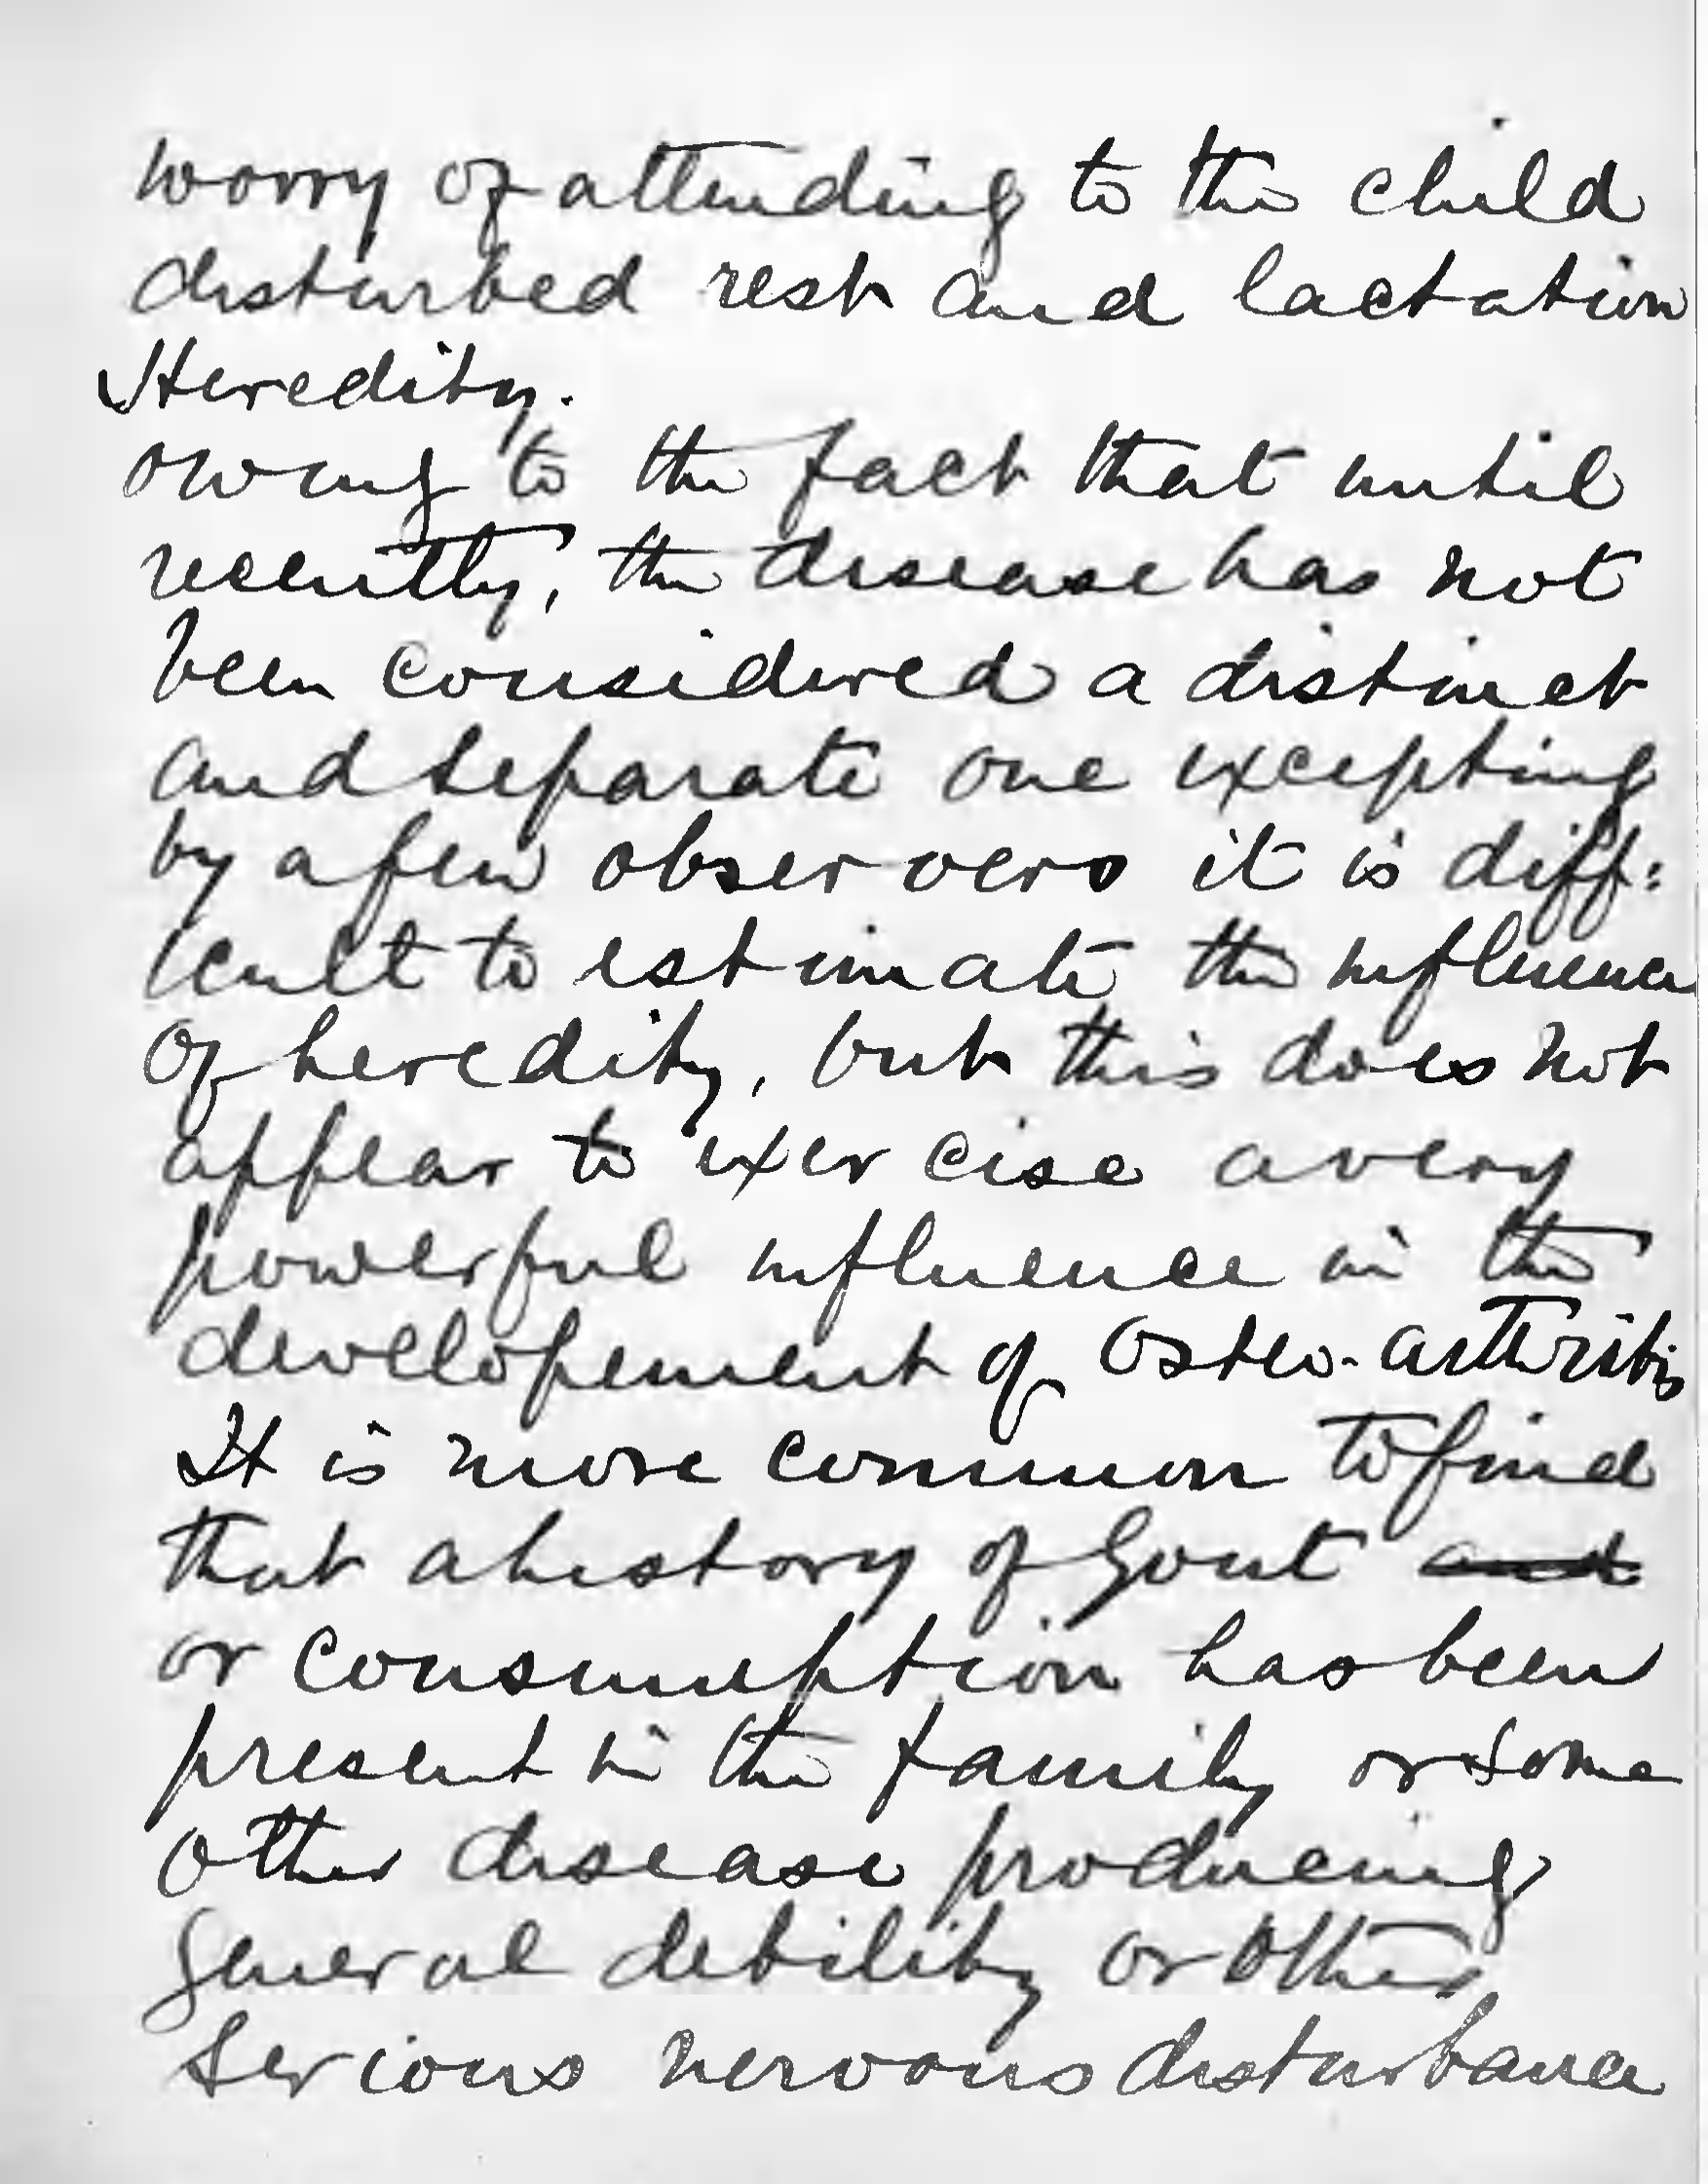 worry of attending to the child
disturbed rest and lactation
Heredity.
owing to the fact that until
recently, the disease has not
been considered a distinct
and separate one excepting
by a few observers it is diff:
icult to estimate the influence
of heredity, but this does not
appear to exercise a very
powerful influence in the
developement of Osteo-arthritis
It is more common to find
that a history of Gout and
or Consumption has been
present in the family or some
other disease producing
general debility or other
serious nervous disturbance